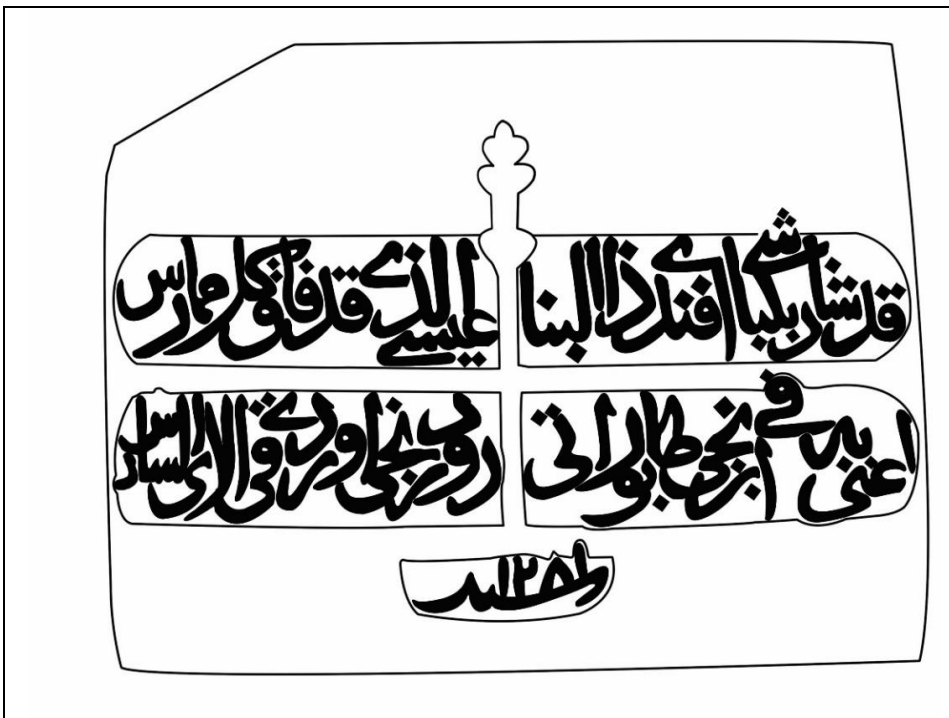 قد شاد بكباشي افندي ذا البنا عيسى الذي قد فاق كل ممارس
اعني به في ابرنجي طابور اتى اوردي وفي الالاي السادس